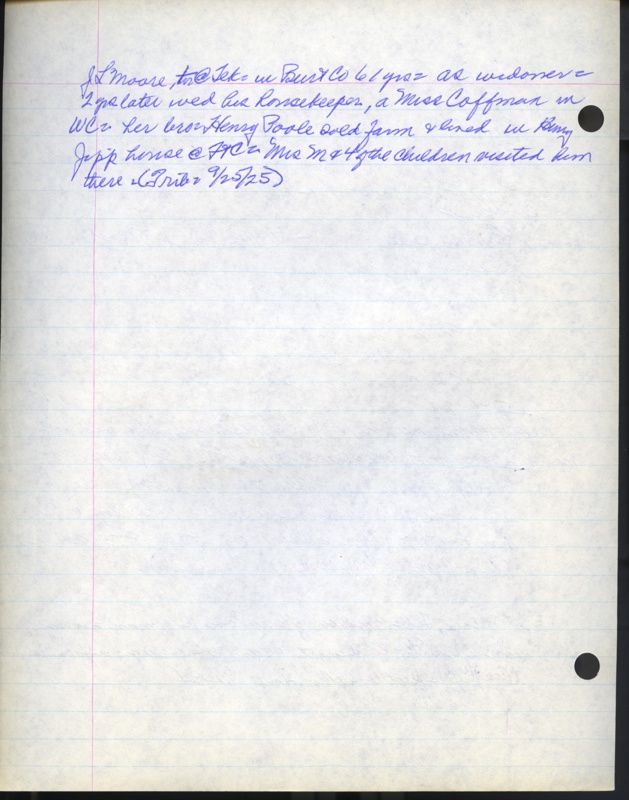 J L Moore, @ Tek = in Burt Co 61 yrs = as widower =
2 yrs later wed his housekeeper, a Miss Coffman in
WC = her bro = Henry Poole sold farm & lived in Henry
Jipp house @ FtC = Mrs M & 4 of the children visited him
there = (Trib = 9/25/25)